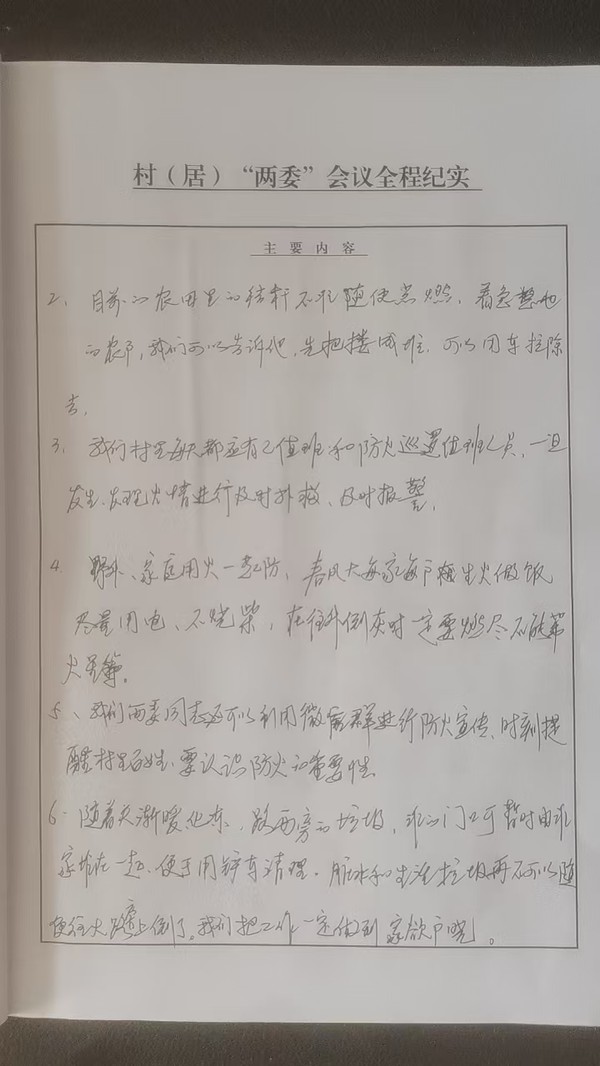 村（居）“两委”会议全程纪实
主要内容
2、目前的农田里的秸杆不准随便点燃，着急整地
的农户，我们可以告诉他，先把搂成堆，可以用车拉除
去。
3、我们村里每天都应有值班和防火巡逻值班人员，一旦
发生、发现火情进行及时扑救、及时报警。
4 野外、家庭用火一起防，春风大每家每户生火做饭
尽量用电、不烧柴，在往外倒灰时一定要燃尽不能带
火星等。
5、我们两委同志还可以利用微信群进行防火宣传、时刻提
醒村里百姓，要认识防火的重要性
6、随着天渐暖化冻，路两旁的垃圾，谁的门口可暂时由谁
家堆在一起，便于用铲车清理。脏水和生活垃圾再不可以随
便往大路上倒了。我们把工作一定做到家欲户晓。